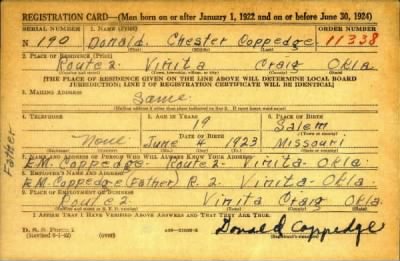 REGISTRATION CARD—(Men born on or after January 1, 1922 and on or before June 30, 1924)
SERIAL NUMBER 1. NAME (Print) ORDER NUMBER
N 190 Donald Chester Coppedge 11338
2. PLACE OF RESIDENCE (Print)
Route 2 Vinita Craig Okla
[THE PLACE OF RESIDENCE GIVEN ON THE LINE ABOVE WILL DETERMINE LOCAL BOARD
JURISDICTION; LINE 2 OF REGISTRATION CERTIFICATE WILL BE IDENTICAL]
3. MAILING ADDRESS
Same
4. TELEPHONE 5. AGE IN YEARS 6. PLACE OF BIRTH
19 Salem
DATE OF BIRTH
None June 4 1923 Missouri
Father
7. NAME AND ADDRESS OF PERSON WHO WILL ALWAYS KNOW YOUR ADDRESS
E.M. Coppedge Route 2 Vinita Okla.
8. EMPLOYER'S NAME AND ADDRESS
E.M. Coppedge (Father) R. 2 Vinita Okla
9. PLACE OF EMPLOYMENT OR BUSINESS
Route 2 Vinita Craig Okla.
I AFFIRM THAT I HAVE VERIFIED ABOVE ANSWERS AND THAT THEY ARE TRUE.
D. S. S. Form 1
(Revised 6-1-42) (over)
Donald Coppedge